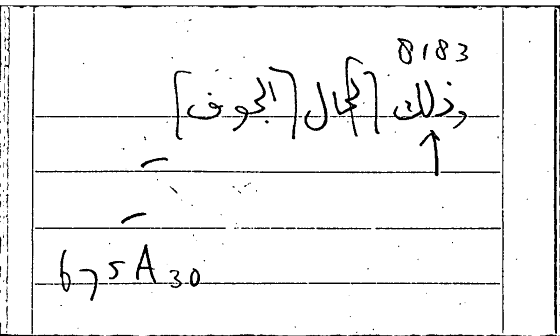 8183
وذلك [الجمال [الجوف]
675A30